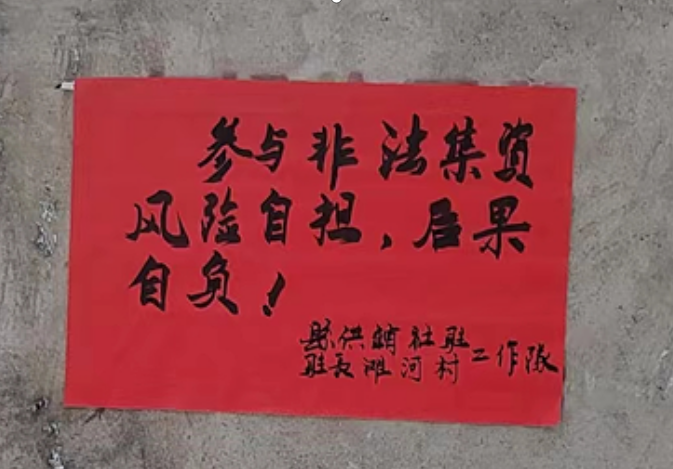 参与非法集资
风险自担,后果
自负!
县供销社驻
驻长滩河村工作队